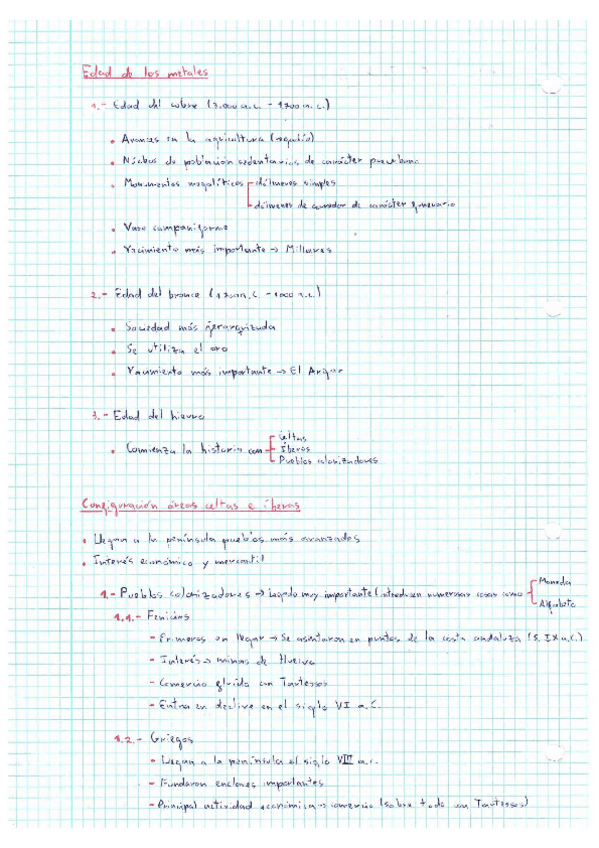 Edad de los metales
1.- Edad del cobre (3.000 a.c. - 1700 a.c.)
• Avances en la agricultura (regadío)
• Núcleos de población sedentarios de carácter preurbano
• Monumentos megalíticos dólmenes simples
dólmenes de corredor de carácter funerario
• Vaso campaniforme
• Yacimiento más importante → Millares
2.- Edad del bronce (1700 a.C. - 1000 a.c.)
• Sociedad más jerarquizada
• Se utiliza el oro
• Yacimiento más importante → El Argar
3.- Edad del hierro
• Comienza la historia con Celtas
Íberos
Pueblos colonizadores
Configuración áreas celtas e íberas
• Llegan a la península pueblos más avanzados
• Interés económico y mercantil
1.- Pueblos colonizadores → Legado muy importante (introducen numerosas cosas como Moneda
Alfabeto
1.1.- Fenicios
- Primeros en llegar → Se asentaron en puntos de la costa andaluza (S. IX a.C.)
- Interés → minas de Huelva
- Comercio fluido con Tartessos
- Entra en declive en el siglo VI a.C.
1.2.- Griegos
- Llegan a la península el siglo VIII a.c.
- Fundaron enclaves importantes
- Principal actividad económica → comercio (sobre todo con Tartessos)